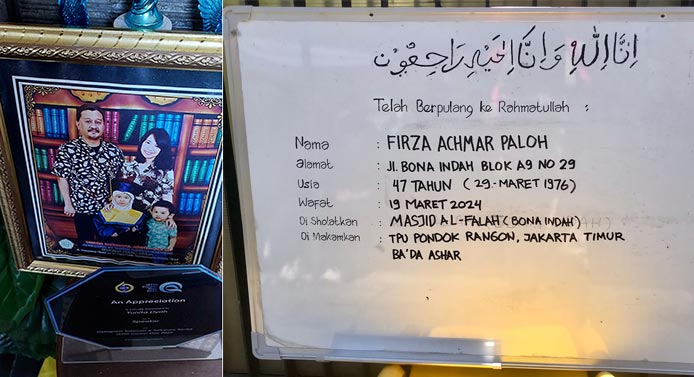 An Appreciation
Speaker
إِنَّا لِلَّٰهِ وَإِنَّا إِلَيْهِ رَاجِعُوْنَ
Telah Berpulang ke Rahmatullah :
Nama : FIRZA ACHMAR PALOH
Alamat : Jl. BONA INDAH BLOK A9 NO 29
Usia : 47 TAHUN ( 29-MARET 1976)
Wafat : 19 MARET 2024
Di Sholatkan : MASJID AL-FALAH (BONA INDAH)
Di Makamkan : TPU PONDOK RANGON, JAKARTA TIMUR
BA'DA ASHAR